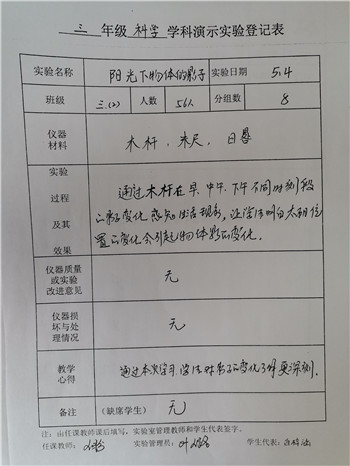 三 年级 科学 学科演示实验登记表
实验名称 阳光下物体的影子 实验日期 5.4
班级 三.(2) 人数 56人 分组数 8
仪器
材料 木杆、米尺、日晷
实验
过程
及其
效果
通过木杆在早、中午、下午不同时刻段
的影变化,感知生活现象,让学生明白太阳位
置的变化会引起物体影的变化。
仪器质量
或实验
改进意见 无
仪器损
坏与处
理情况 无
教学
心得 通过本次学习,学生对影子的变化了解更深刻.
备注 (缺席学生) 无
注:由任课教师课后填写,实验室管理教师和学生代表签字。
任课教师: 实验管理员: 学生代表: